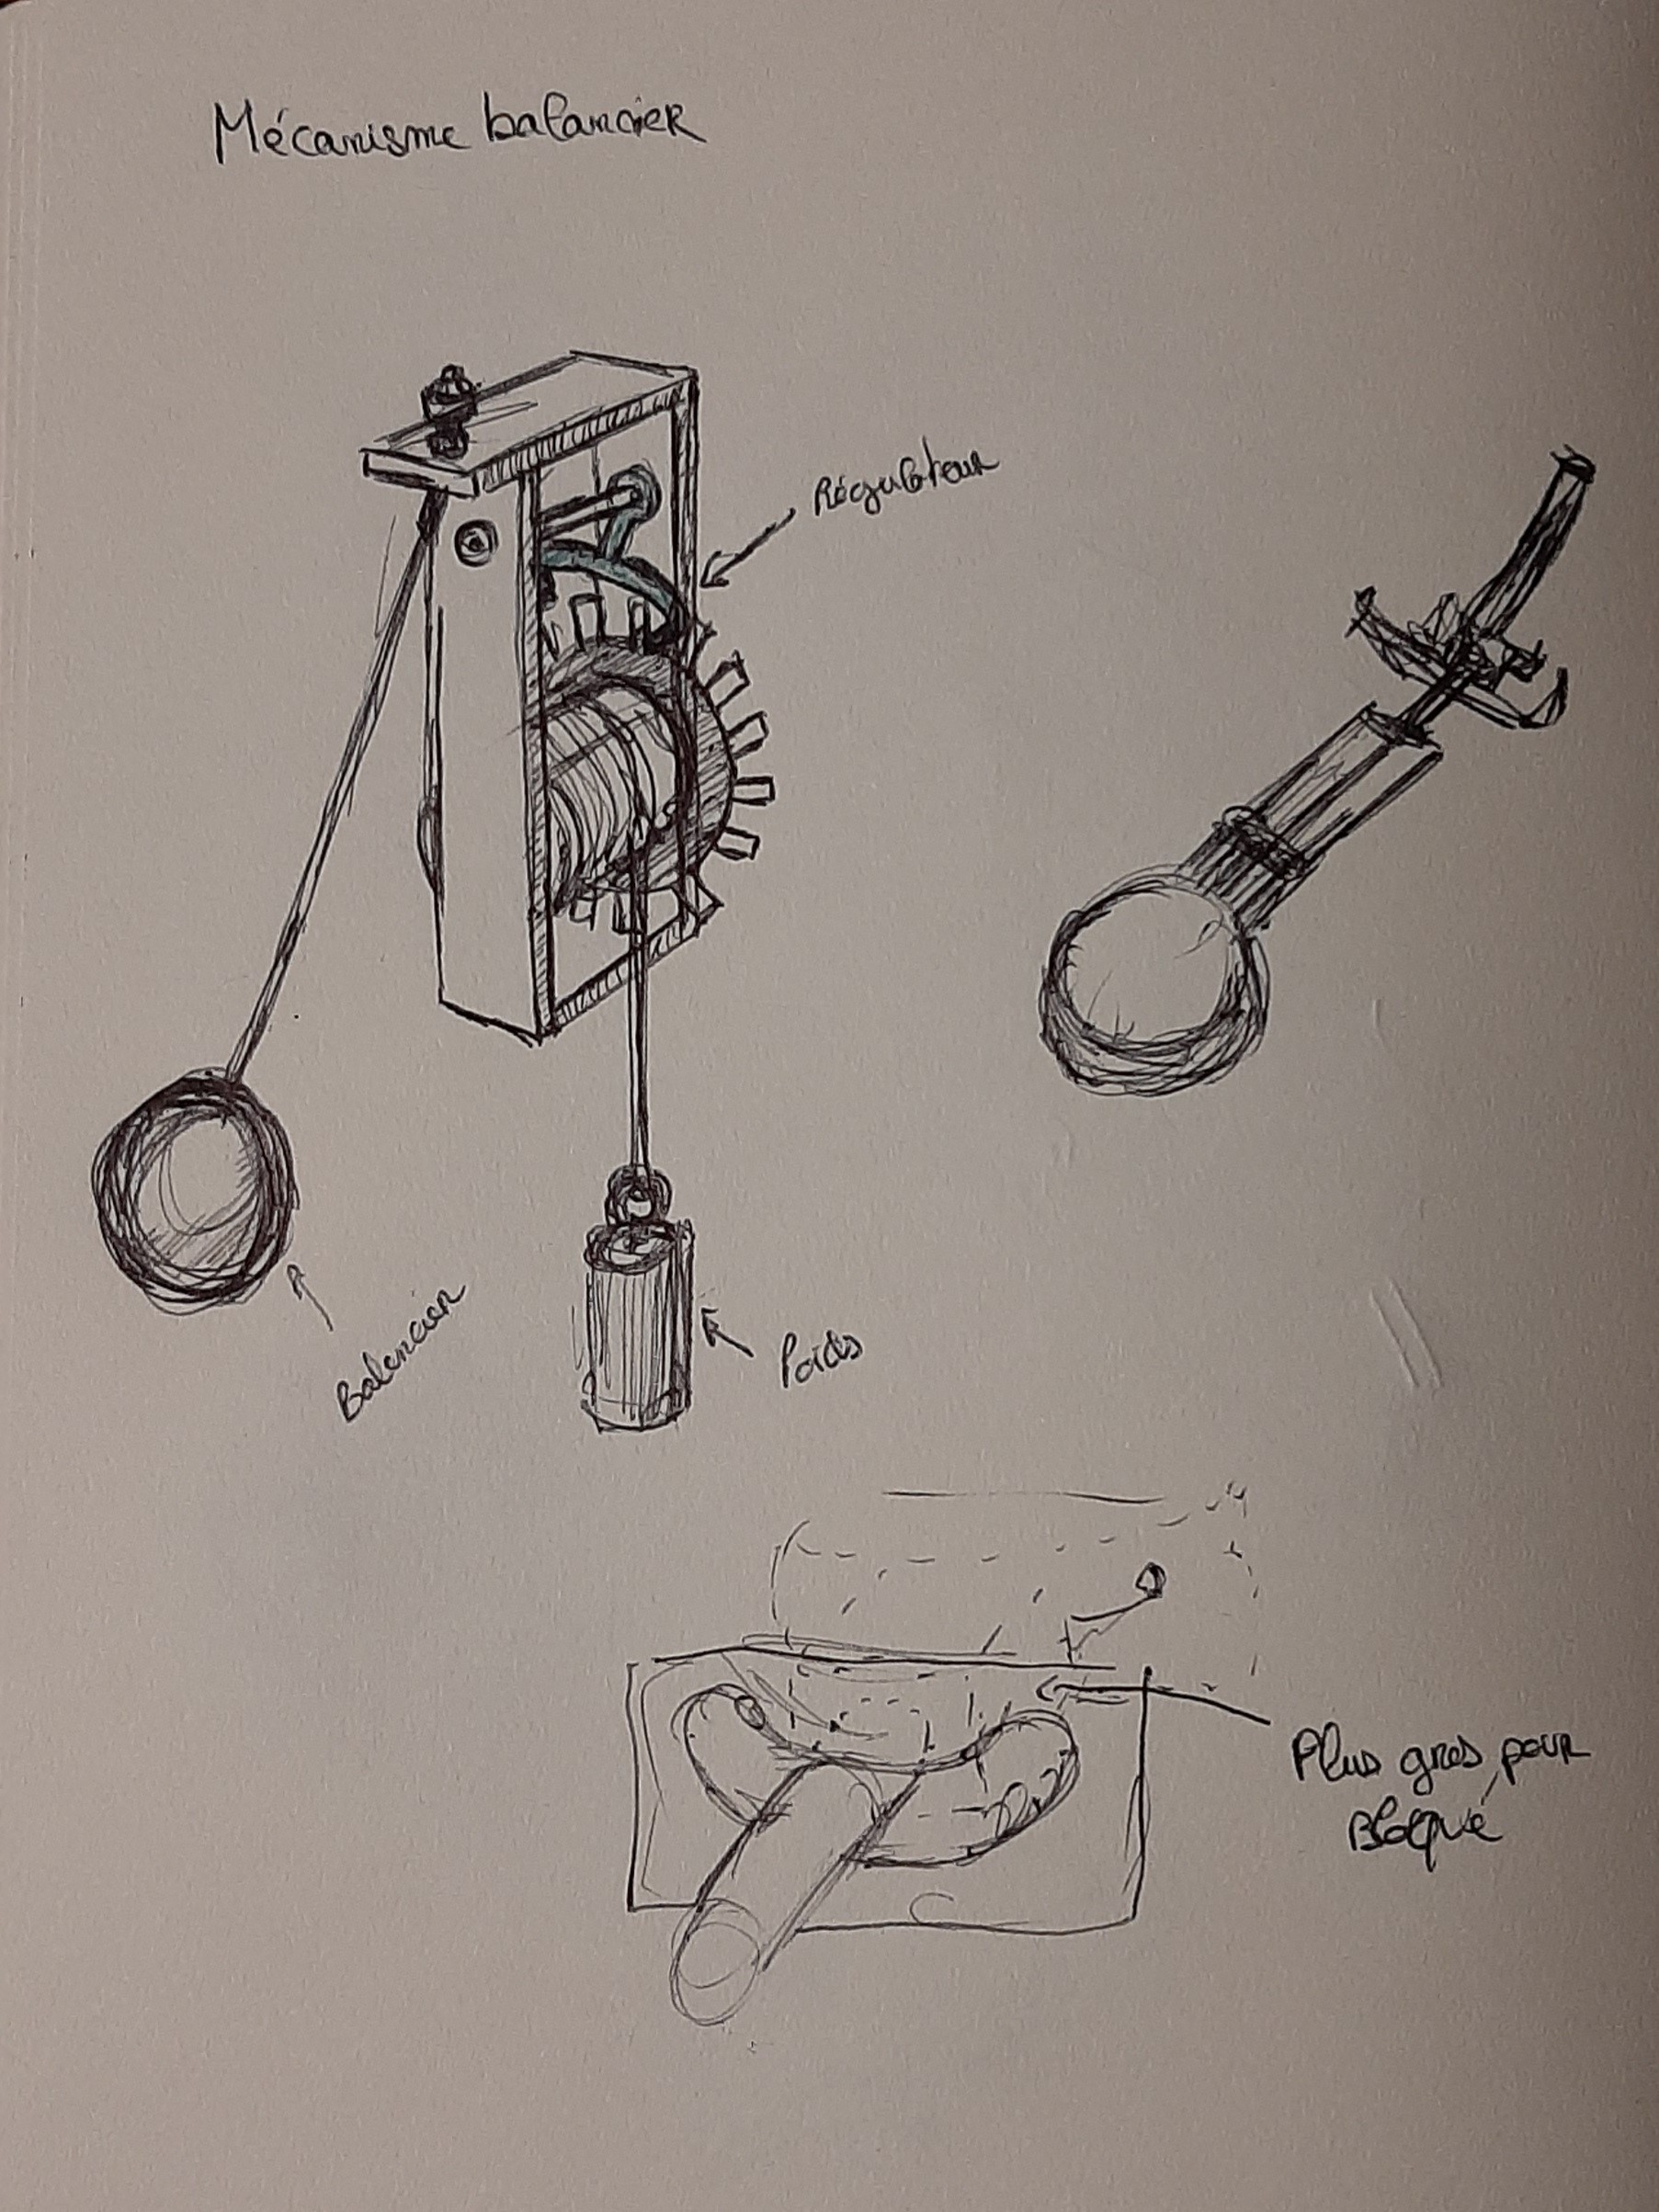 Mécanisme balancier
Régulateur
Balancier
Poids
Plus gros pour
Bloqué